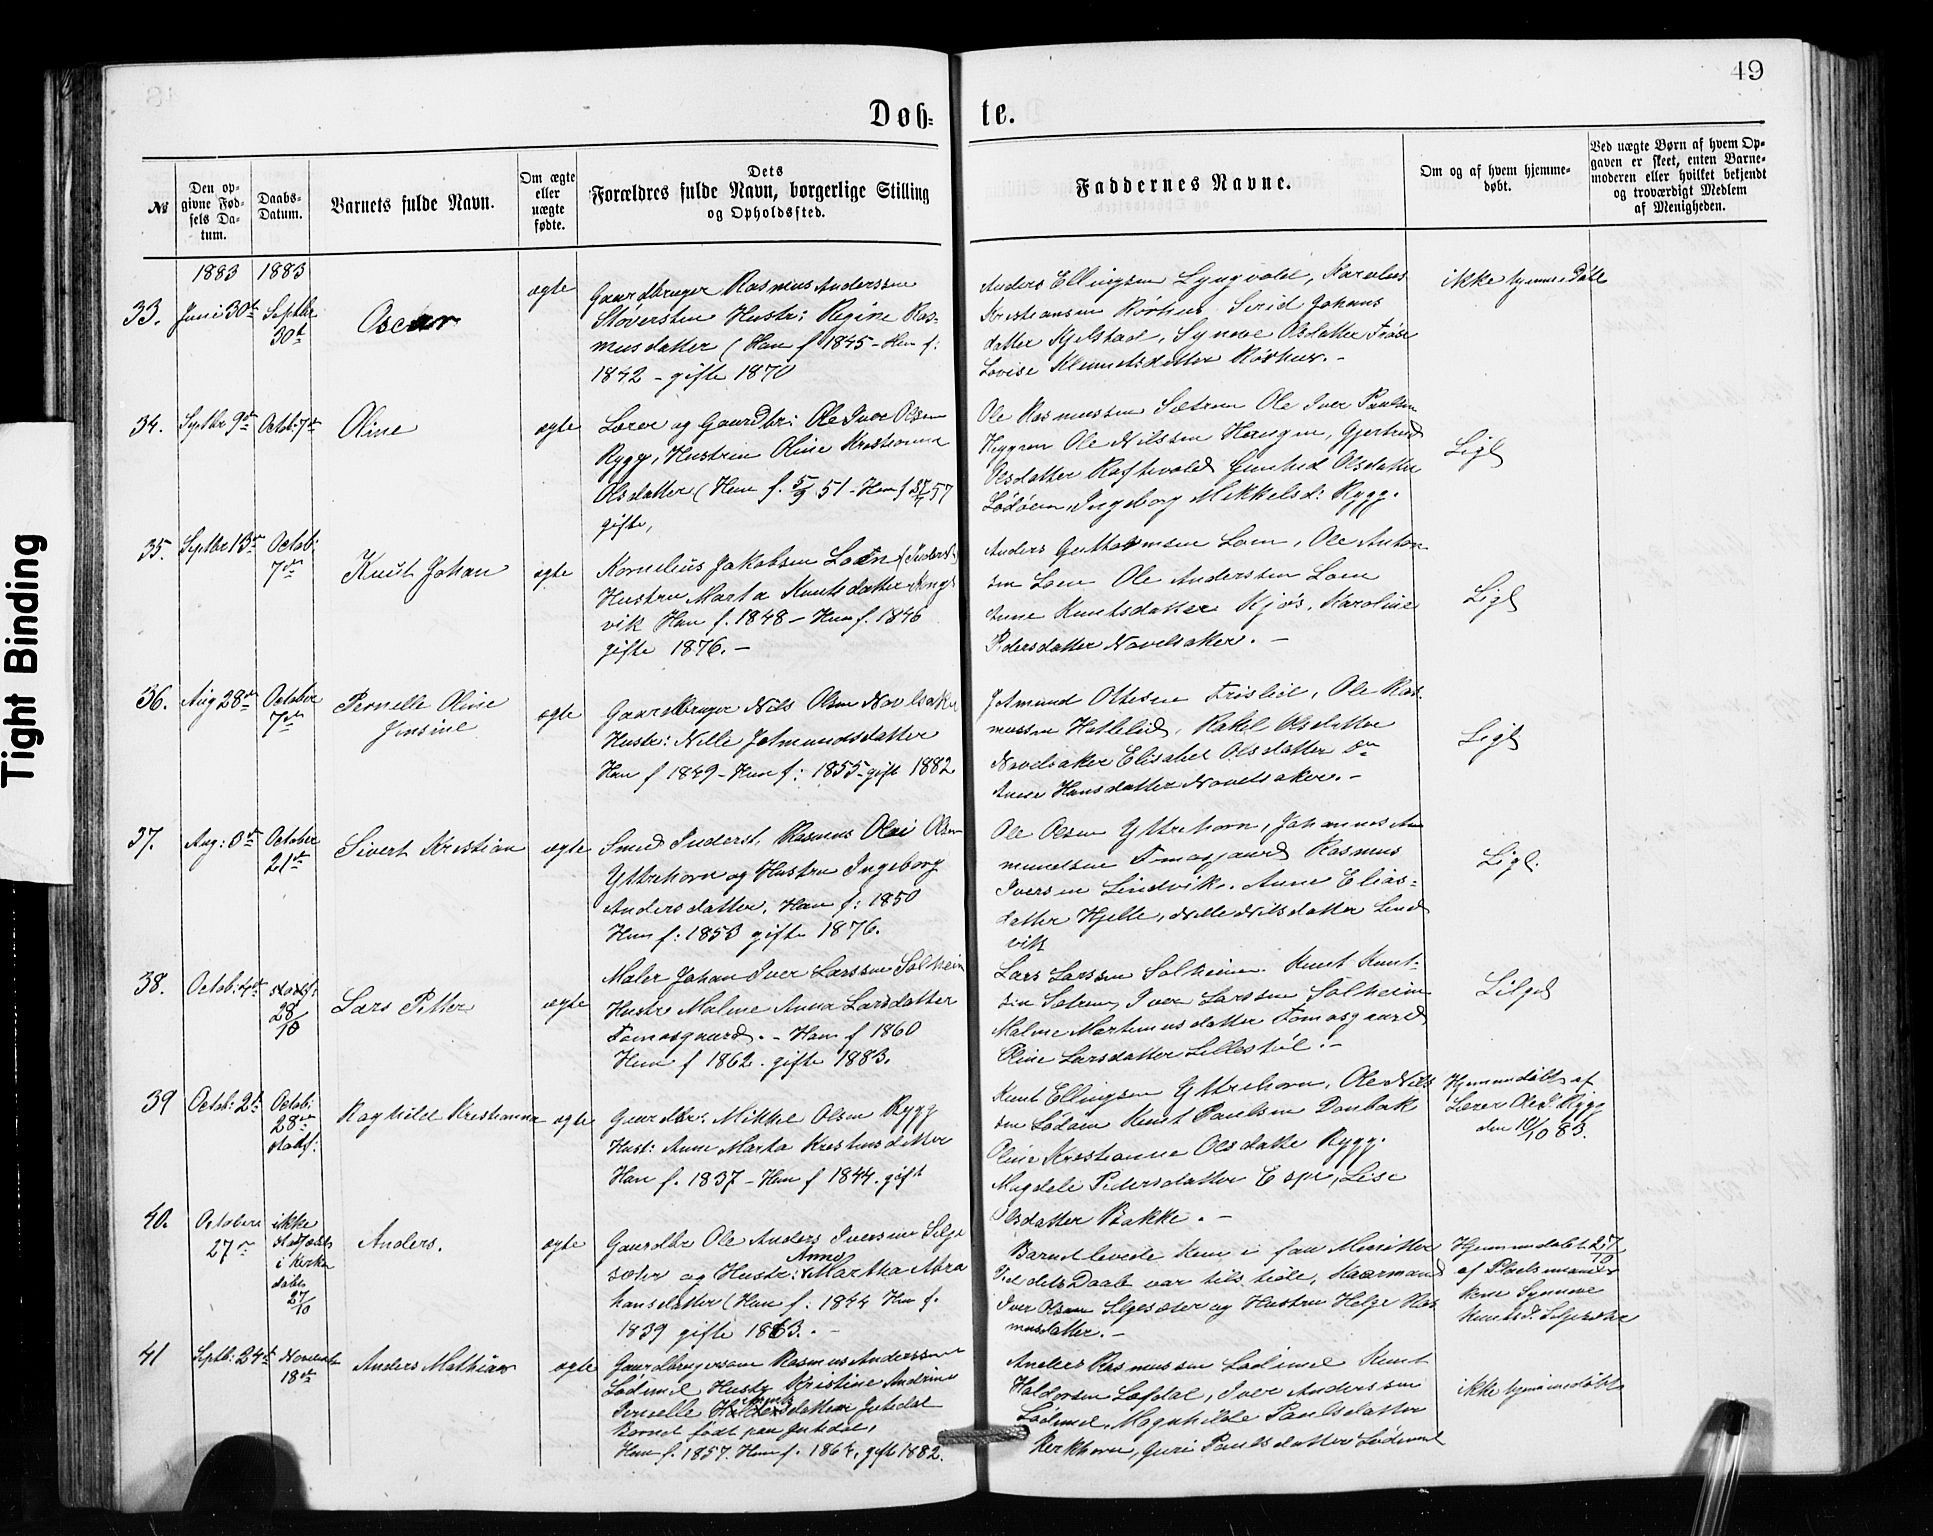 49
Døb-
te.
№
Den op-
givne Fød-
sels Da-
tum.
Daabs-
Datum.
Barnets fulde Navn.
Om ægte
eller
uægte
fødte.
Dets
Forældres fulde Navn, borgerlige Stilling
og Opholdssted.
Faddernes Navne.
Om og af hvem hjemme-
døbt.
Ved uægte Børn af hvem Op-
gaven er skeet, enten Barne-
moderen eller hvilket bekjendt
og troværdigt Medlem
af Menigheden.
1883
1883
33.
Juni 30te
Septbr
30t
Oscar
ægte
Gaardbruger Rasmus Anderssen
Hustr: Regine Ras-
musdatter (Han f 1845 - Hun f:
1842 - gifte 1870
Anders Ellingsen Lyngvold,
Kristiansen Rørhus, Sirid Johans
datter Kjelstad, Synøve Olsdatter
Lovise Klemetsdatter Rørhus. -
ikke hjemmedøbt
34.
Septbr 9de
Octob: 7de
Oline
ægte
Lærer og Gaardbr: Ole Iver Olsen
Rygg, Hustru Oline Kristianna
Olsdatter (Han f. 5/9 51 - Hun f 57
gifte,
Ole Rasmussen Sætren Ole Iver Paulsen
Heggren Ole Nilssen Haugen, Gjertrud
Olsdatter Raftevold Gunhild Olsdatter
Lødøen, Ingeborg Mikkelsd: Rygg.
Ligl
35.
Septbr 13de
Octob:
7de
Knut Johan
ægte
Kornelius Jakobsen Loen (Inderst)
Hustru Marta Knutsdatter
vik Han f. 1848 - Hun f. 1846
gifte 1876. -
Anders Guttormsen Loen, Ole Anton
sen Loen Ole Anderssen Loen
Anne Knutsdatter Kjøs, Karoline
Pedersdatter Navelsaker. -
Ligl
36.
Aug 28de
October
7de
Pernelle Oline
Jensine
ægte
Gaardbruger Nils Olsen Navelsaker
Hustr: Nille Jetmundsdatter
Han f 1849 - Hun f: 1855 - gift 1882
Jetmund Ottesen Frislid, Ole Ras-
mussen Hattelid, Rakel Olsdatter
Navelsaker Elisabet Olsdatter
Anne Hansdatter Navelsaker. -
Ligl
37.
Aug: 3de
October
21de
Sivert Kristian
ægte
Smed Inderst, Rasmus Olai Olsen
Yttrehorn og Hustru Ingeborg
Andersdatter. Han f: 1850
Hun f: 1853 gifte 1876.
Ole Olsen Yttrehorn, Johannes An
mundsen Tomasgaard Rasmus
Iversen Lindvik. Anne Elias-
datter Hjelle, Nille Nilsdatter Lind
vik
Ligl.
38.
Octob: 4de
stadf:
28/10
Lars Petter
ægte
Maler Johan Iver Larssen Solheim
Hustr Malene Anna Larsdatter
Tomasgaard. - Han f 1860
Hun f 1862. gifte 1883.
Lars Larssen Solheim. Knut Knut-
sen Sætren, Iver Larssen Solheim
Malene Martinusdatter Tomasgaard,
Oline Larsdatter Lillestøl. -
39
Octob: 2de
Octob:
28de
stadf:
Raghilde Kristianna
ægte
Gaardbr: Mikkel Olsen Rygg
Hust: Anne Marta Kristensdatter
Han f. 1837 - Hun f 1844. gift
Knut Ellingsen Yttrehorn, Ole Nils
sen Lødøen Knut Paulsen Vonbak
Oline Kristianne Olsdatter Rygg.
Magdeli Pedersdatter Espe, Lise
Olsdatter Bakke. -
Hjemmedøbt af
Lærer Ole I. Rygg
den 10/10 83.
40.
October
27de
ikke
stadfæstet
i Kirken
døbt
27/10
Anders.
ægte
Gaardbr Ole Anders Iversen Silje
sæter og Hustr: Anne Martha Abra
hamsdatter (Han f. 1844 Hun f.
1839 gifte 1863. -
Barnet levede kun i faa Minutter
Ved dets Daab var tilstede, Kaarmand
Iver Olsen Siljesæter og Hustru Helge Ras
musdatter. -
Hjemmedøbt 27/10
af Pladsmands
kone Synneve
Knutsd. Siljesæter
41
Septb: 24de
Novembr
18de
Anders Mathias
ægte
Gaardbrugersøn Rasmus Anderssen
Lødemel Hustr Kristine Andrine
Pernelle datter Jutedal
Barnet født paa Jutedal,
Han f. 1857. Hun f. 1864, gift 1882.
Anders Rasmussen Lødemel Knut
Haldorsen Løfdal, Iver Anderssen
Lødemel, Magnhilde Paulsdatter
Kirkhorn, Guri Paulsdatter Lødemel
ikke hjemmedøbt
Tight Binding